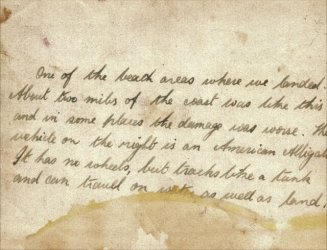 One of the beach areas where we landed.
About two miles of the coast was like this
and in some places the damage was worse. The
vehicle on the right is an American Alligat
It has no wheels, but tracks like a tank
and can travel on water as well as land.